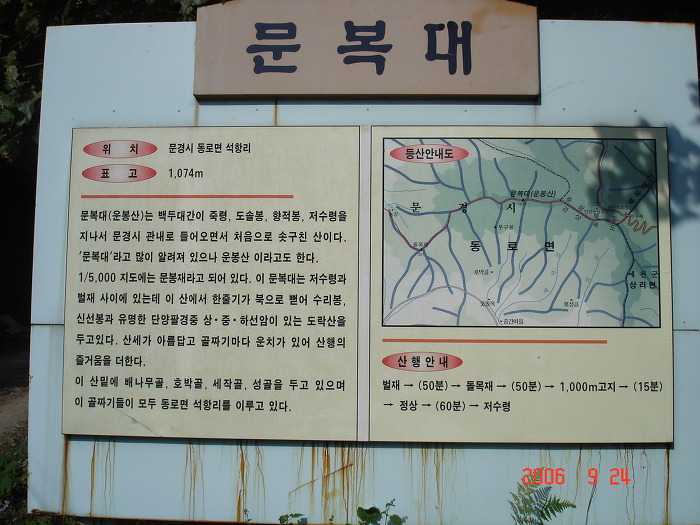 문복대
위 치 문경시 동로면 석항리
표 고 1,074m
문복대(운봉산)는 백두대간이 죽령, 도솔봉, 향적봉, 저수령을
지나서 문경시 관내로 들어오면서 처음으로 솟구친 산이다.
'문복대'라고 많이 알려져 있으나 운봉산 이라고도 한다.
1/5,000 지도에는 문봉재라고 되어 있다. 이 문복대는 저수령과
벌재 사이에 있는데 이 산에서 한줄기가 북으로 뻗어 수리봉,
신선봉과 유명한 단양팔경중 상·중·하선암이 있는 도락산을
두고있다. 산세가 아름답고 골짜기마다 운치가 있어 산행의
즐거움을 더한다.
이 산밑에 배나무골, 호박골, 세작골, 성골을 두고 있으며
이 골짜기들이 모두 동로면 석항리를 이루고 있다.
등산안내도
문복대(운봉산)
문 경 시
동 로 면
예천군
상리면
중간마을
산행안내
벌재 → (50분) → 돌목재 → (50분) → 1,000m고지 → (15분)
→ 정상 → (60분) → 저수령
2006 9 24